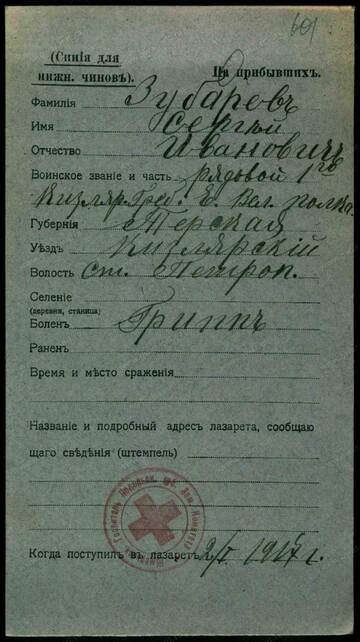 601
(Синія для
нижн. чиновъ).
На прибывшихъ.
Фамилія Зубаревъ
Имя Сергѣй
Отчество Ивановичъ
Воинское званіе и часть рядовой 1го
Кизляр. Греб. Е. Вел. полка
Губернія Терская
Уѣздъ Кизлярскій
Волость ст. Петроп.
Селеніе
(деревня, станица)
Боленъ Гриппъ
Раненъ
Время и мѣсто сраженія
Названіе и подробный адресъ лазарета, сообщаю
щаго свѣдѣнія (штемпель)
Когда поступилъ въ лазаретъ 2/I 1917 г.